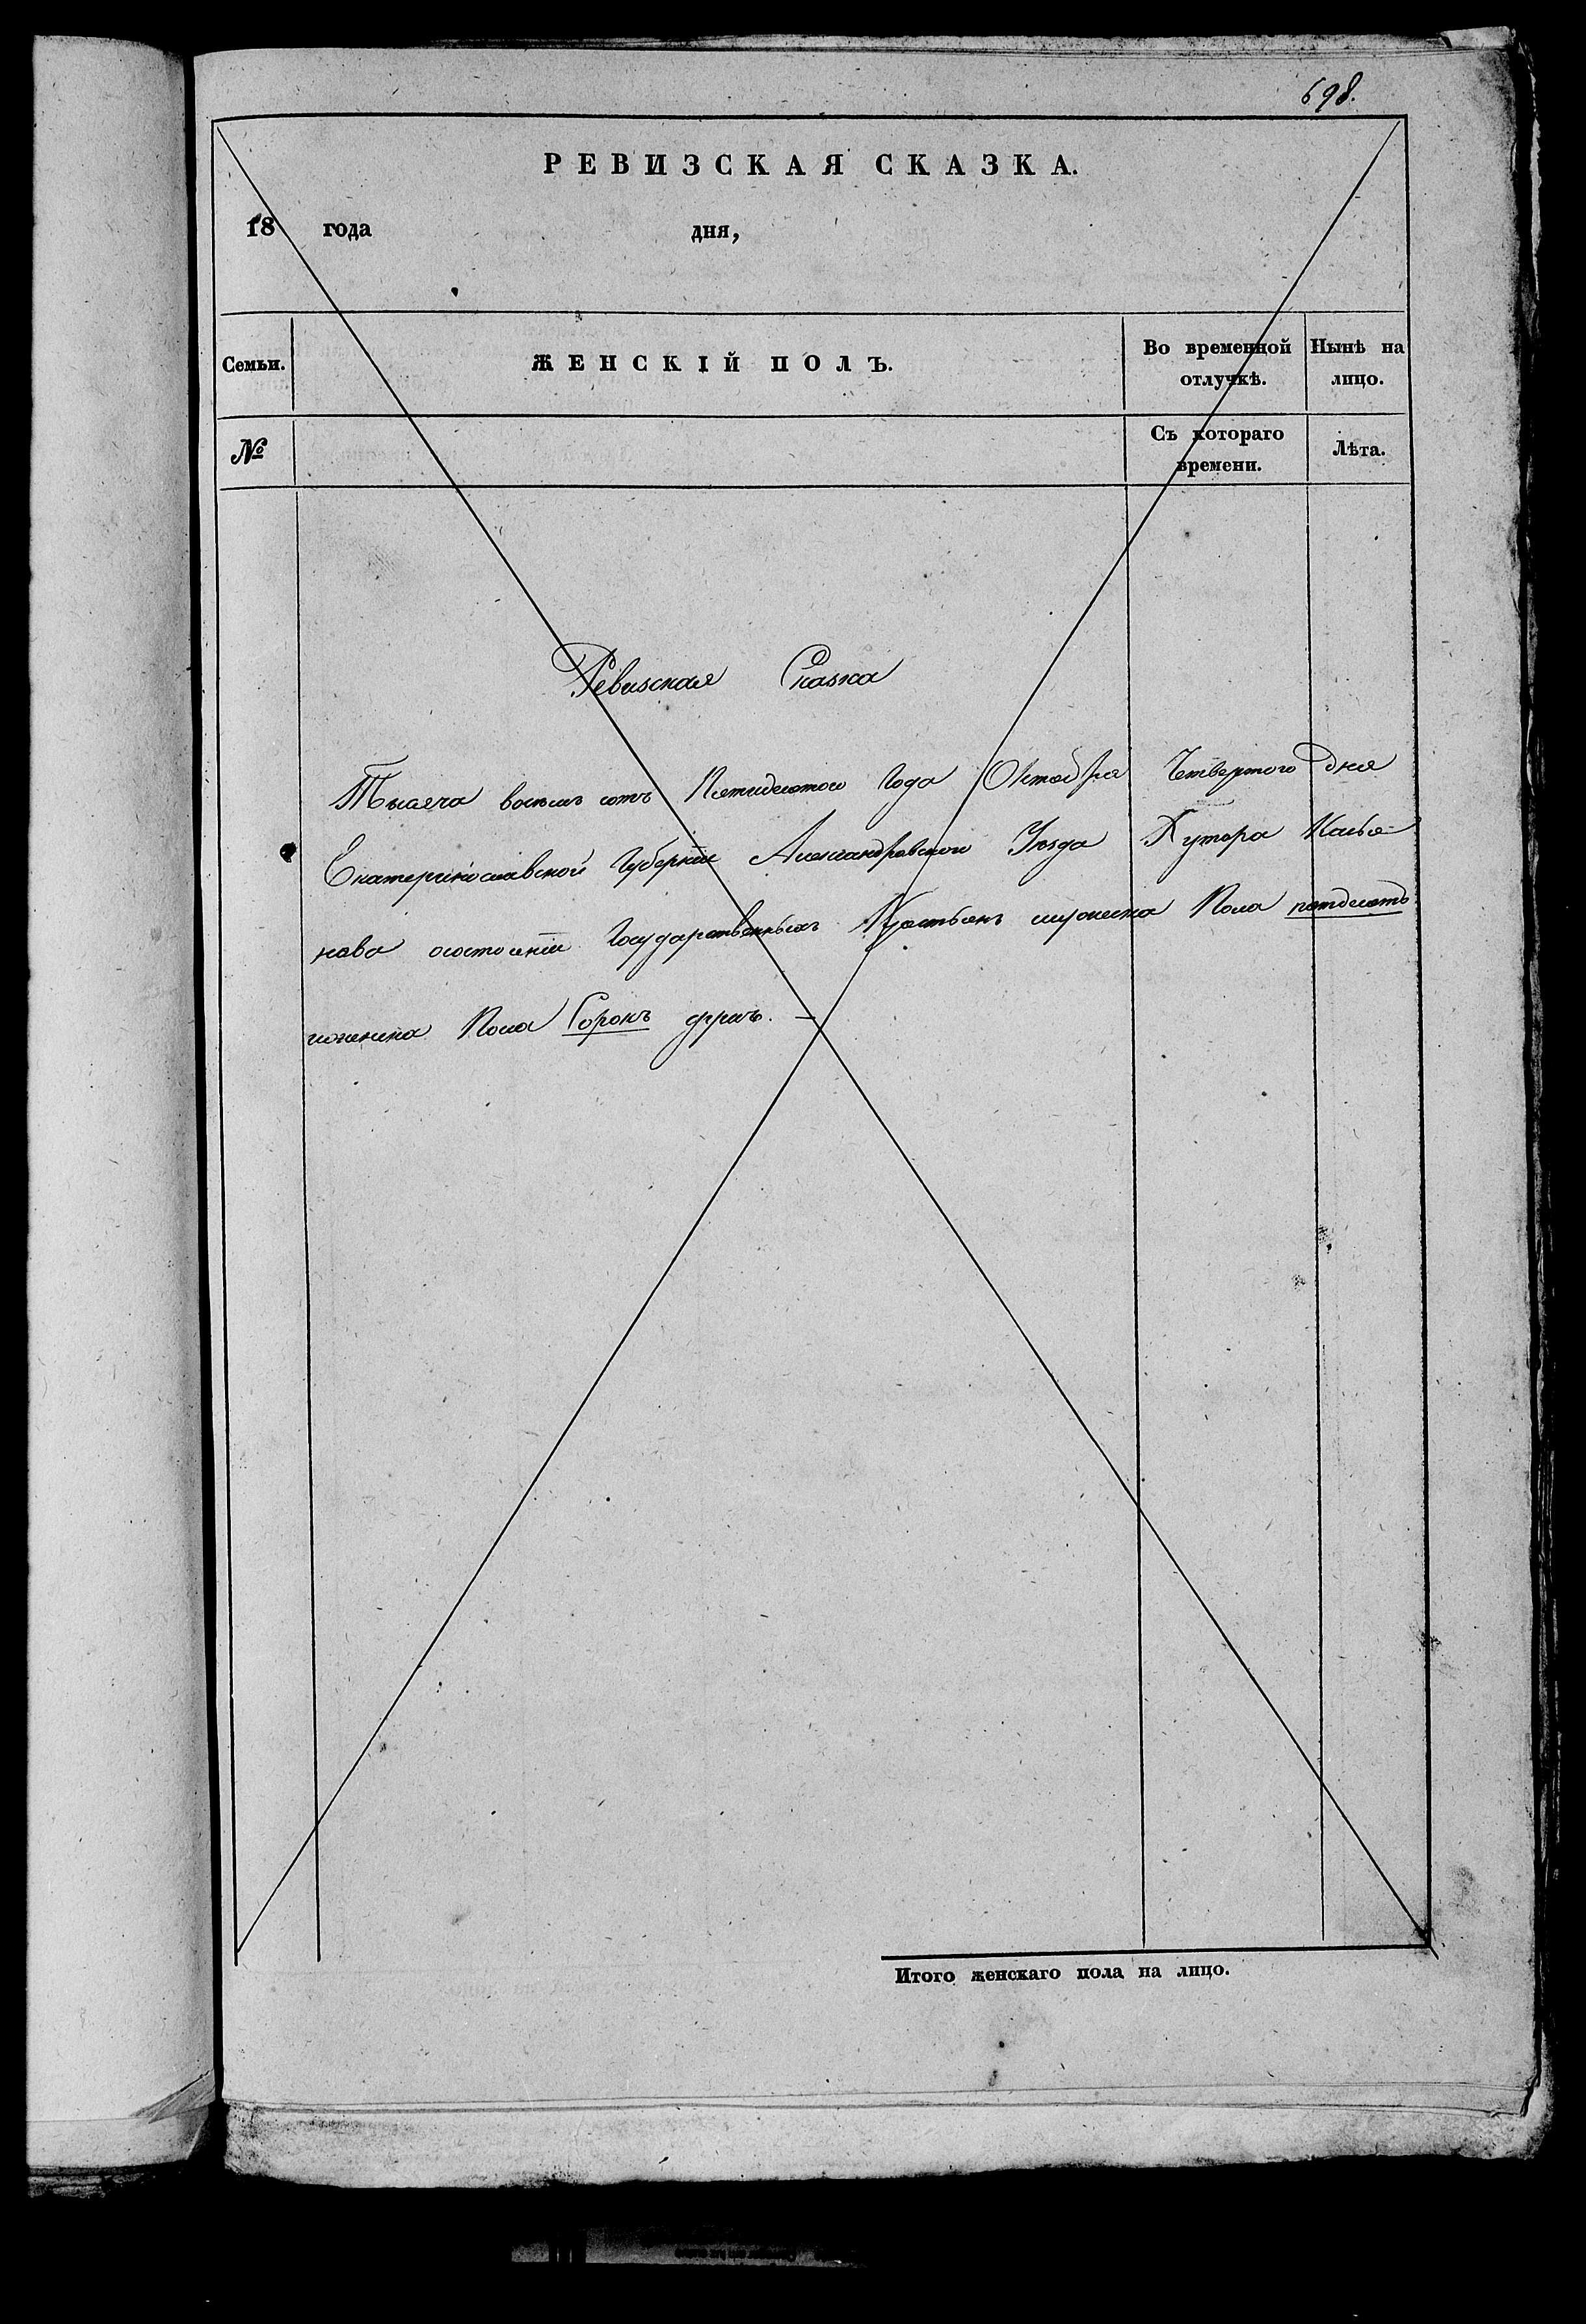 698.
РЕВИЗСКАЯ СКАЗКА.
18 года дня,
Семьи. ЖЕНСКІЙ ПОЛЪ. Во временной отлучкѣ. Нынѣ на лицо.
№ Съ котораго времени. Лѣта.
Ревизская Сказка
Тысяча восемь сотъ Пятидесятого Года Октября Четвертого дня
Екатеринославской Губерніи Александровского Уезда Хутора
нава осостоянии Государственныхъ Крестьянъ мужеска Пола пятдесятъ
иженска Пола Сорокъ душъ. –
Итого женскаго пола на лицо.